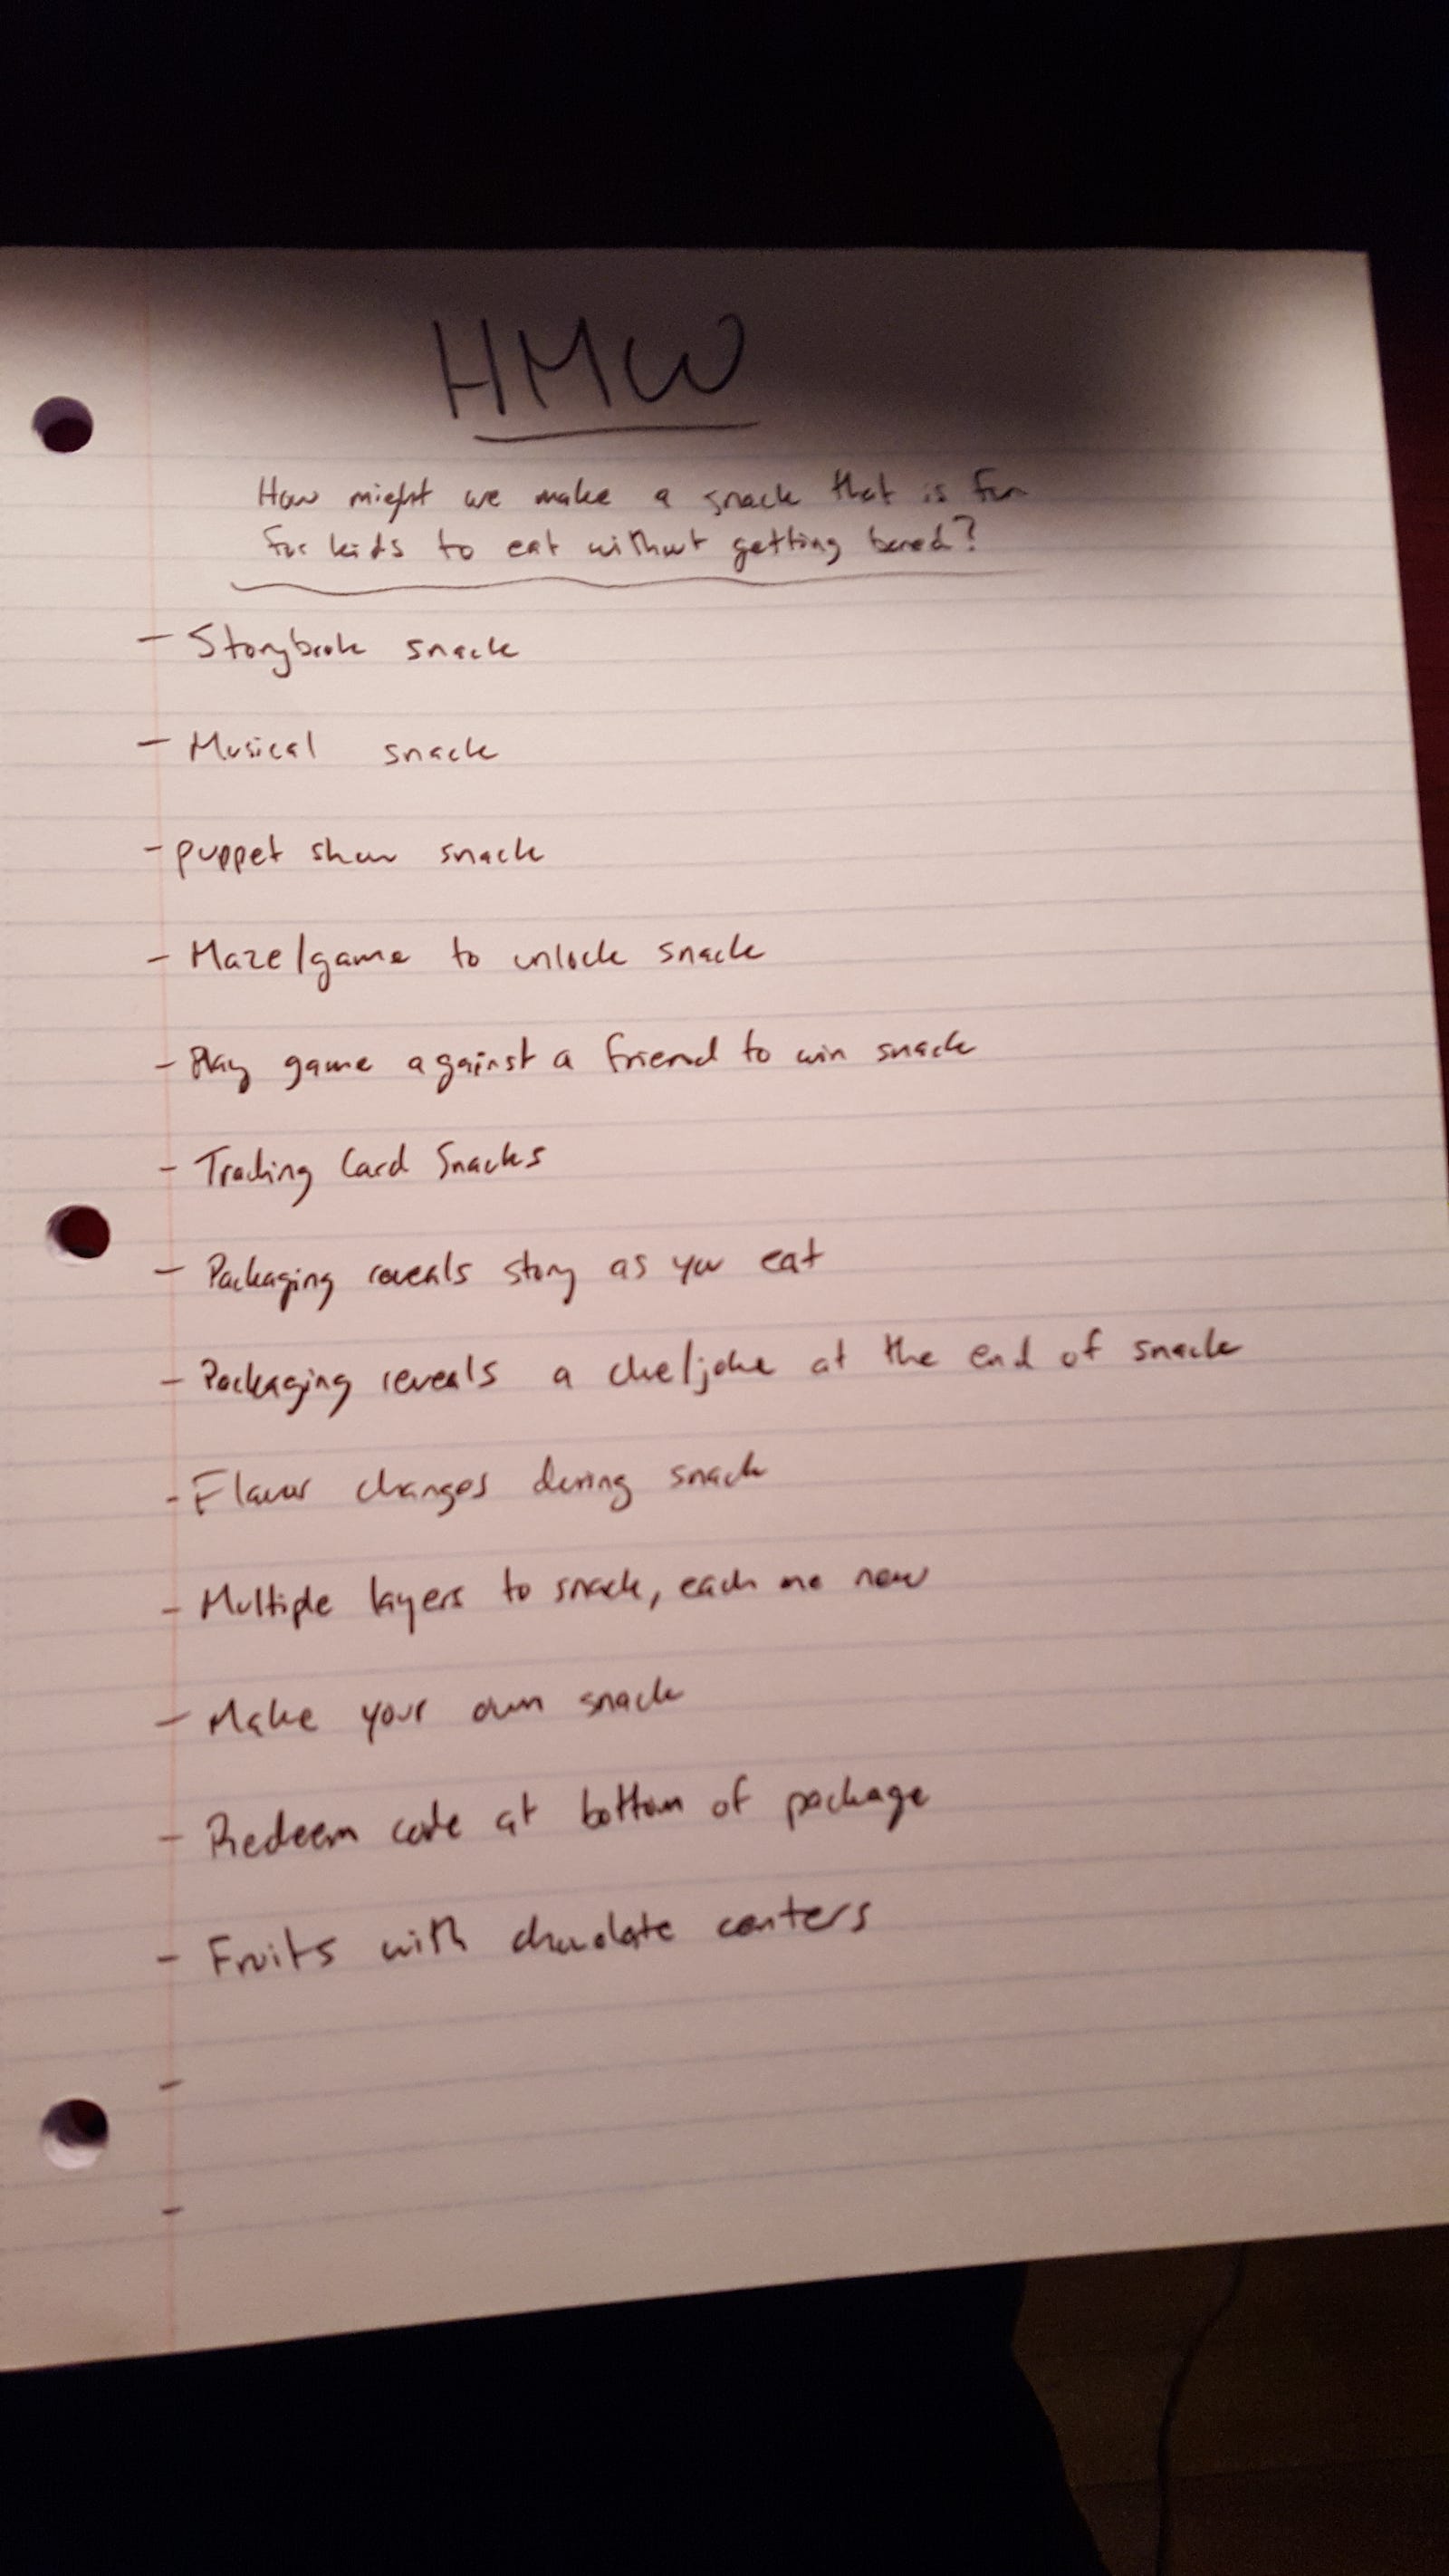 HMW
How might we make a snack that is fun
for kids to eat without getting bored?
- Storybook snack
- Musical snack
- puppet show snack
- Maze/game to unlock snack
- Play game against a friend to win snack
- Trading Card Snacks
- Packaging reveals story as you eat
- Packaging reveals a clue/joke at the end of snack
- Flavor changes during snack
- Multiple layers to snack, each one new
- Make your own snack
- Redeem code at bottom of package
- Fruits with chocolate centers
-
-